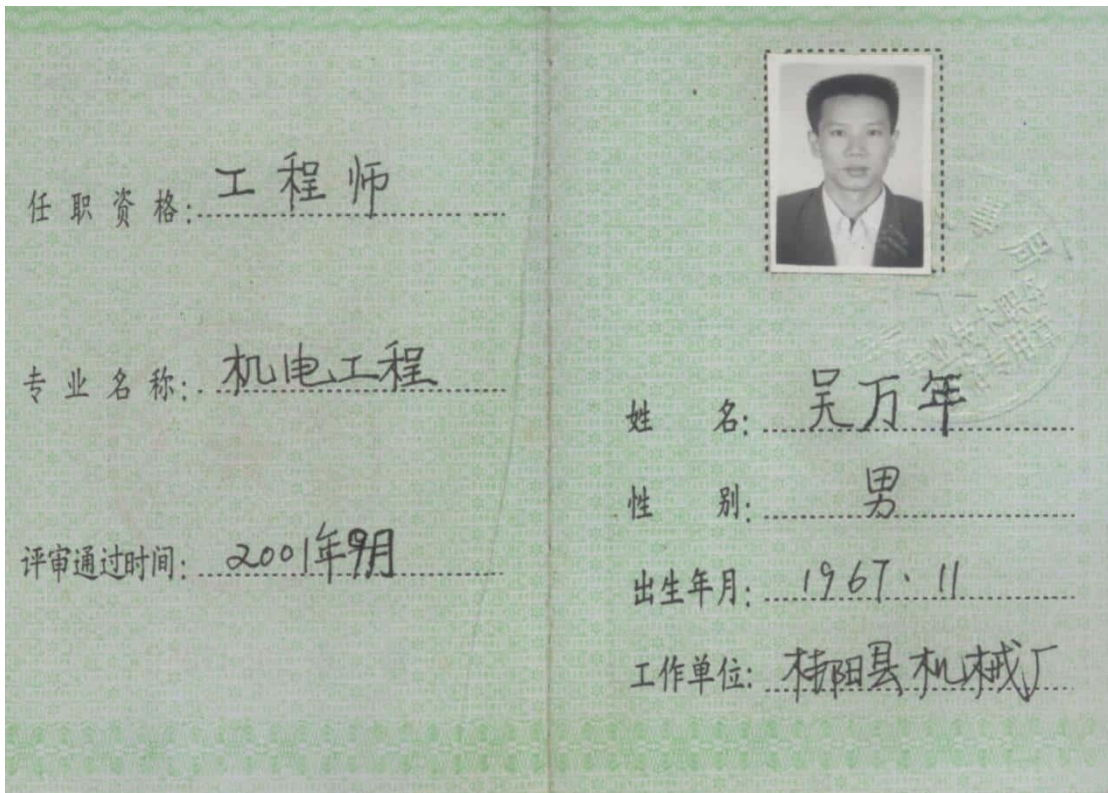 任职资格:工程师
专业名称:机电工程
评审通过时间:2001年9月
姓名:吴万年
性别:男
出生年月:1967.11
工作单位:桂阳县机械厂